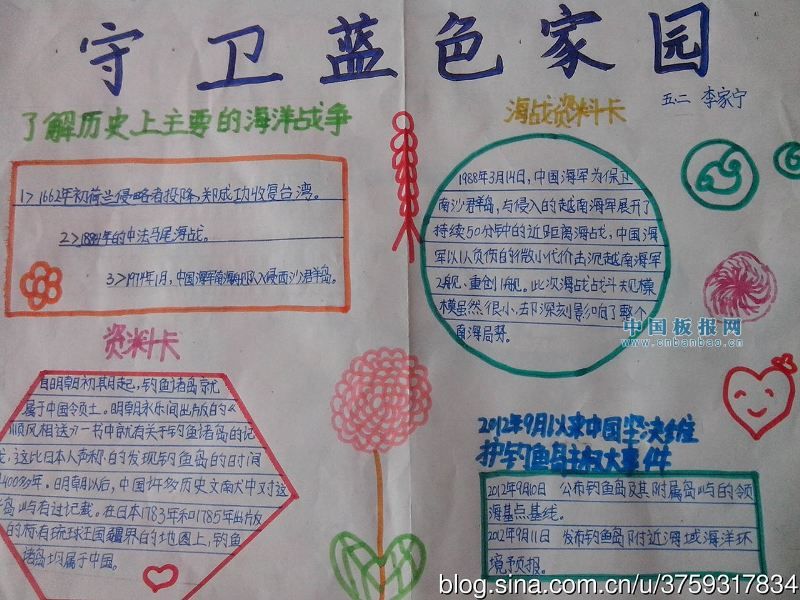 守卫蓝色家园
五二 李家宁
了解历史上主要的海洋战争
1> 1662年初荷兰侵略者投降,郑成功收复台湾。
2> 1884年的中法马尾海战。
3> 1974年1月,中国海军南海舰队入侵西沙君羊岛。
海战资料卡
1988年3月14日,中国海军为保卫
南沙君羊岛,与侵入的越南海军展开了
持续50分钟的近距离海战,中国海
军以1人负伤的微小代价击沉越南海军
2舰、重创1舰。此次海战战斗规模
模虽然很小,却深刻影响了整个
南海局势。
资料卡
自明朝初期起,钓鱼诸岛就
属于中国领土。明朝永乐间出版的《
顺风相送》一书中就有关于钓鱼诸岛的记
这比日本人声称的发现钓鱼岛的时间
400多年。明朝以后,中国许多历史文献中对这
岛屿有过记载。在日本1783年和1785年出版
的标有琉球王国疆界的地图上,钓鱼
诸岛均属于中国。
2012年9月以来中国坚决维
护钓鱼岛主权大事件
2012年9月10日 公布钓鱼岛及其附属岛屿的领
海基点基线。
2012年9月11日 发布钓鱼岛附近海域海洋环
境预报。
中国板报网
www.cnbanbao.cn
blog.sina.com.cn/u/3759317834